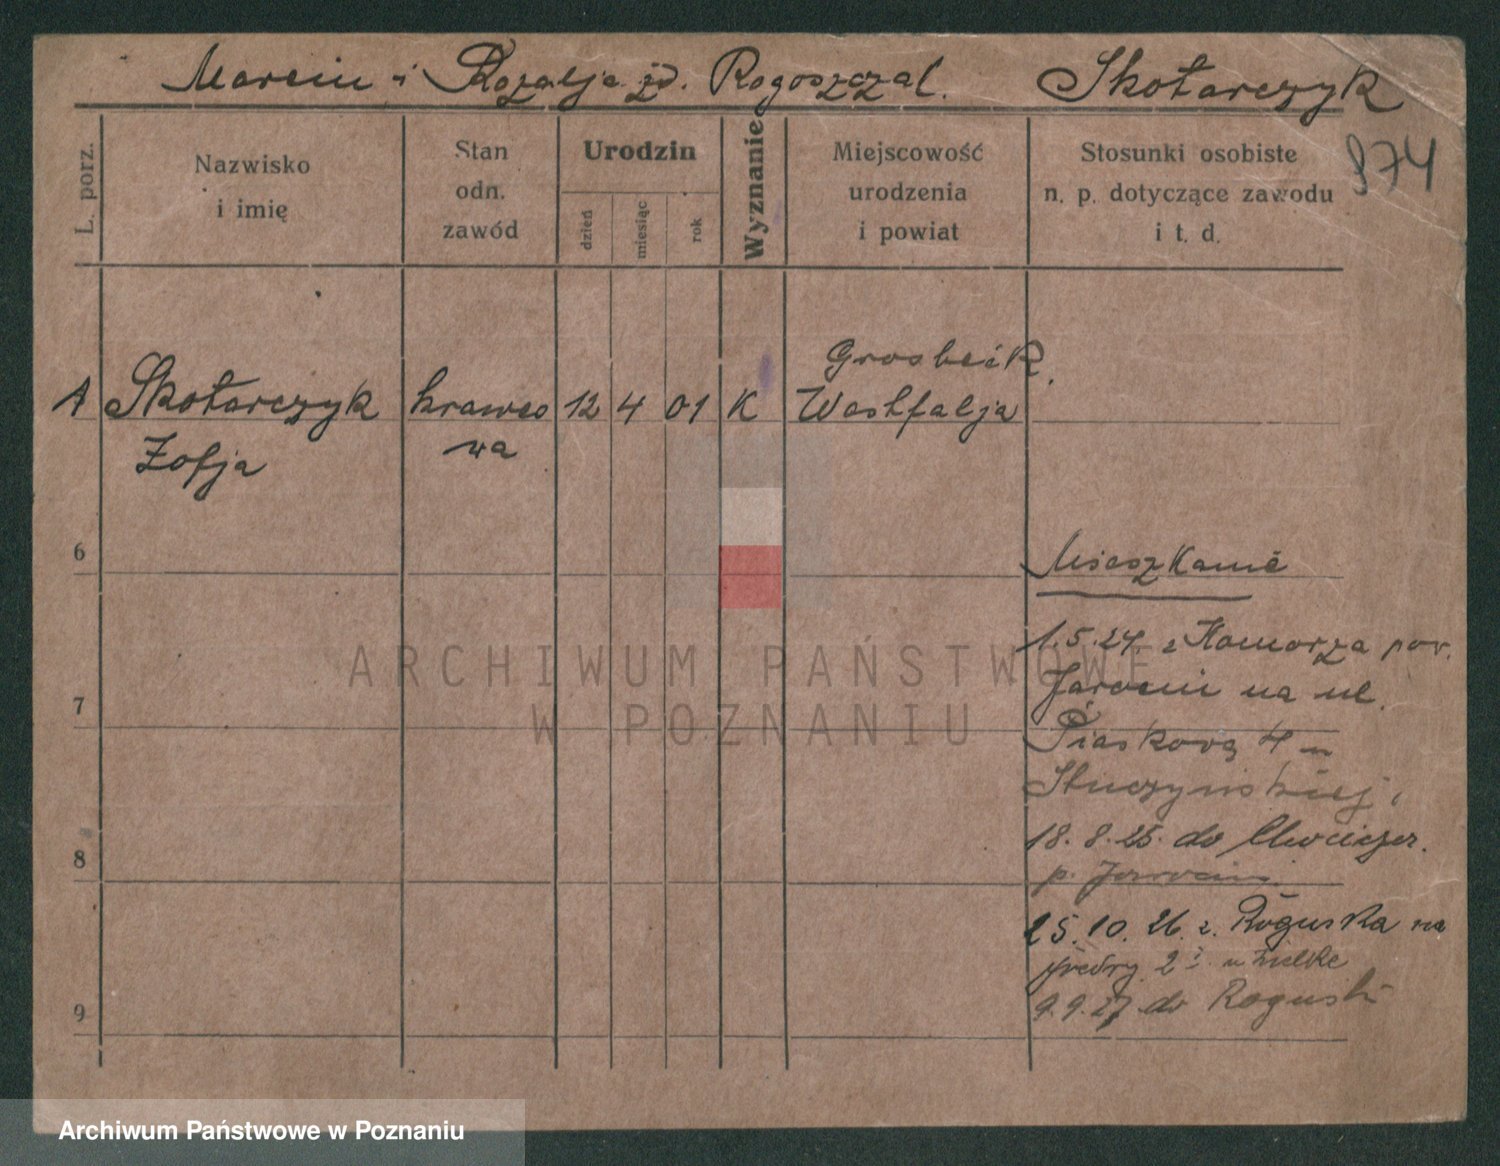 Marcin i Rozalja zd. Rogoszczal. Skotarczyk
974
L. porz.
Nazwisko
i imię
Stan
odn.
zawód
Urodzin
dzień
miesiąc
rok
Wyznanie
Miejscowość
urodzenia
i powiat
Stosunki osobiste
n. p. dotyczące zawodu
i t. d.
1 Skotarczyk krawco 12 4 01 K Grosbeck
Zofja wa Westfalja
6
7
8
9
Mieszkanie
1.5.24. z Komorza pow.
Jarocin na ul.
Piaskową 4 u
18.8.25. do
p. Jarocin
25.10.26. z. Roguska na
Fredry 2 u Zielke
9.9.27 do Roguski
ARCHIWUM PAŃSTWOWE
W POZNANIU
Archiwum Państwowe w Poznaniu